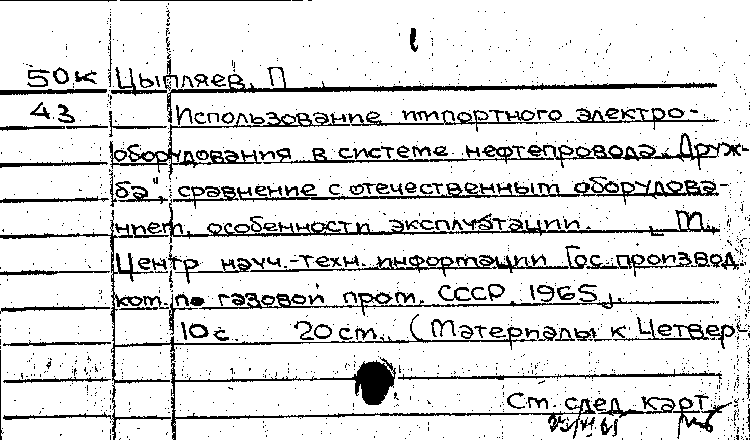 50к Цыпляев, П
43 Использование импортного электро-
оборудования в системе нефтепровода „Друж-
ба", сравнение с отечественным оборудова-
нием, особенности эксплуатации. М.,
Центр науч.-техн. информации Гос. производ.
ком. по газовой пром. СССР, 1965.
10 с. 20 см. (Материалы к Четвер-
См. след. карт.